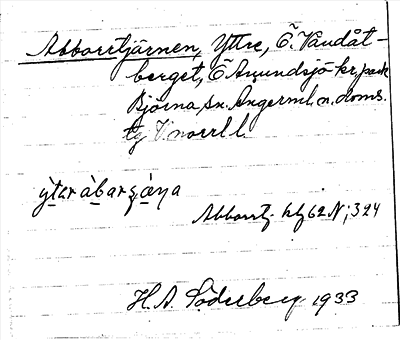 Abborrtjärnen, Yttre, Ö. Vändåt-
berget, Ö Amundsjö kr. park
Björna sn. Ångerml. n. doms.
tg V norrl l.
ỳtər àbarʂæ̀ɳa
Abborrtj. kbl 62 N; 324
H. A. Söderberg 1933